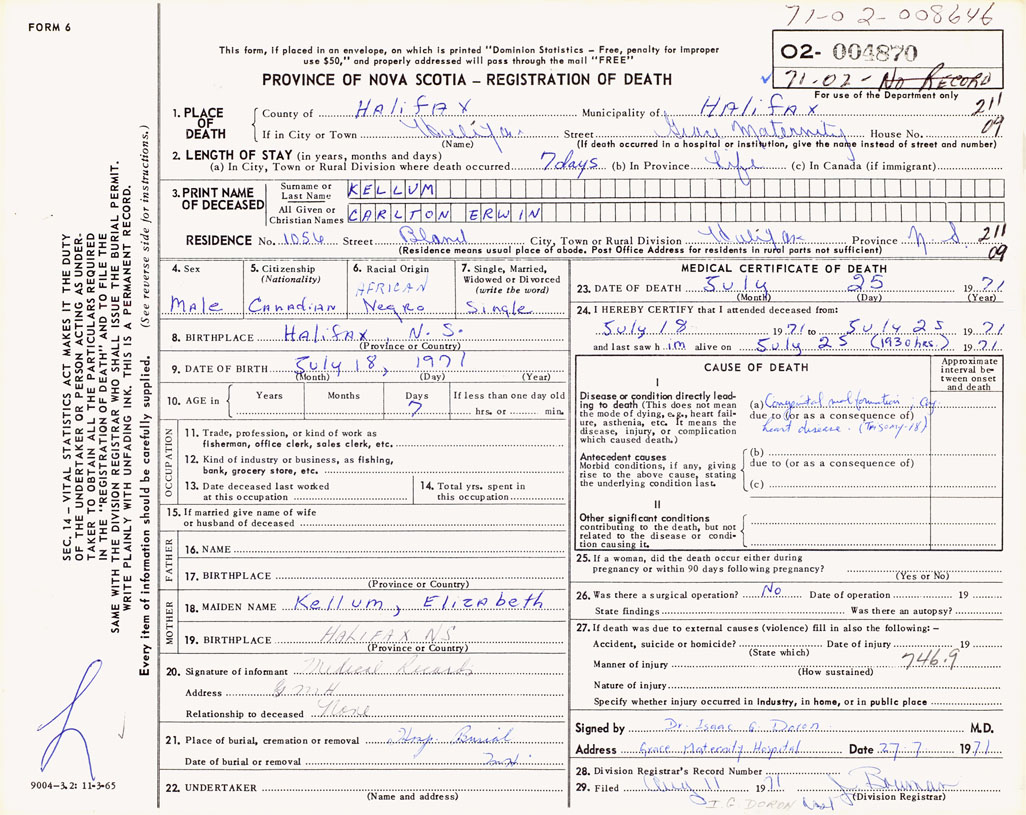 71-02-008646
FORM 6
This form, if placed in an envelope, on which is printed "Dominion Statistics – Free, penalty for improper
use $50," and properly addressed will pass through the mail "FREE"
PROVINCE OF NOVA SCOTIA – REGISTRATION OF DEATH
02- 004870
71-02- No RECORD
For use of the Department only
211
09
1. PLACE OF DEATH
County of Halifax Municipality of Halifax
If in City or Town Halifax Street Grace Maternity House No.
(Name) (If death occurred in a hospital or institution, give the name instead of street and number)
2. LENGTH OF STAY (in years, months and days)
(a) In City, Town or Rural Division where death occurred 7 days (b) In Province Life (c) In Canada (if immigrant)
3. PRINT NAME OF DECEASED
Surname or Last Name KELLUM
All Given or Christian Names CARLTON ERWIN
RESIDENCE No. 1056 Street Bland City, Town or Rural Division Halifax Province N.S 211
09
(Residence means usual place of abode. Post Office Address for residents in rural parts not sufficient)
4. Sex
Male
5. Citizenship
(Nationality)
Canadian
6. Racial Origin
AFRICAN
Negro
7. Single, Married,
Widowed or Divorced
(write the word)
Single
8. BIRTHPLACE Halifax, N.S.
(Province or Country)
9. DATE OF BIRTH July 18, 1971
(Month) (Day) (Year)
10. AGE in Years Months Days 7 If less than one day old
hrs. or min.
OCCUPATION
11. Trade, profession, or kind of work as
fisherman, office clerk, sales clerk, etc.
12. Kind of industry or business, as fishing,
bank, grocery store, etc.
13. Date deceased last worked
at this occupation
14. Total yrs. spent in
this occupation
15. If married give name of wife
or husband of deceased
FATHER
16. NAME
17. BIRTHPLACE
(Province or Country)
MOTHER
18. MAIDEN NAME Kellum, Elizabeth
19. BIRTHPLACE HALIFAX NS
(Province or Country)
20. Signature of informant Medical Records
Address G M H
Relationship to deceased None
21. Place of burial, cremation or removal Hosp. Burial
Date of burial or removal
22. UNDERTAKER
(Name and address)
MEDICAL CERTIFICATE OF DEATH
23. DATE OF DEATH July 25 1971
(Month) (Day) (Year)
24. I HEREBY CERTIFY that I attended deceased from:
July 18 1971 to July 25 1971
and last saw him alive on July 25 (1930 hrs.) 1971
CAUSE OF DEATH
Approximate interval between onset and death
I
Disease or condition directly leading to death (This does not mean
the mode of dying, e.g., heart failure, asthenia, etc. It means the
disease, injury, or complication
which caused death.)
(a) Congenital malformation, Cong.
due to (or as a consequence of)
heart disease. (Trisomy-18)
Antecedent causes
Morbid conditions, if any, giving
rise to the above cause, stating
the underlying condition last.
(b)
due to (or as a consequence of)
(c)
II
Other significant conditions
contributing to the death, but not
related to the disease or condition causing it.
25. If a woman, did the death occur either during
pregnancy or within 90 days following pregnancy?
(Yes or No)
26. Was there a surgical operation? No Date of operation 19
State findings Was there an autopsy?
27. If death was due to external causes (violence) fill in also the following: –
Accident, suicide or homicide? Date of injury 19
(State which)
Manner of injury 746.9
(How sustained)
Nature of injury
Specify whether injury occurred in industry, in home, or in public place
Signed by Dr. Isaac G. Doron M.D.
Address Grace Maternity Hospital Date 27.7 1971
28. Division Registrar's Record Number
29. Filed Aug 11 1971 J. Bowman
(Division Registrar)
I.G DORON
SEC. 14 – VITAL STATISTICS ACT MAKES IT THE DUTY
OF THE UNDERTAKER OR PERSON ACTING AS UNDER-
TAKER TO OBTAIN ALL THE PARTICULARS REQUIRED
IN THE "REGISTRATION OF DEATH" AND TO FILE THE
SAME WITH THE DIVISION REGISTRAR WHO SHALL ISSUE THE BURIAL PERMIT.
WRITE PLAINLY WITH UNFADING INK. THIS IS A PERMANENT RECORD.
Every item of information should be carefully supplied. (See reverse side for instructions.)
9004–3.2: 11-3-65